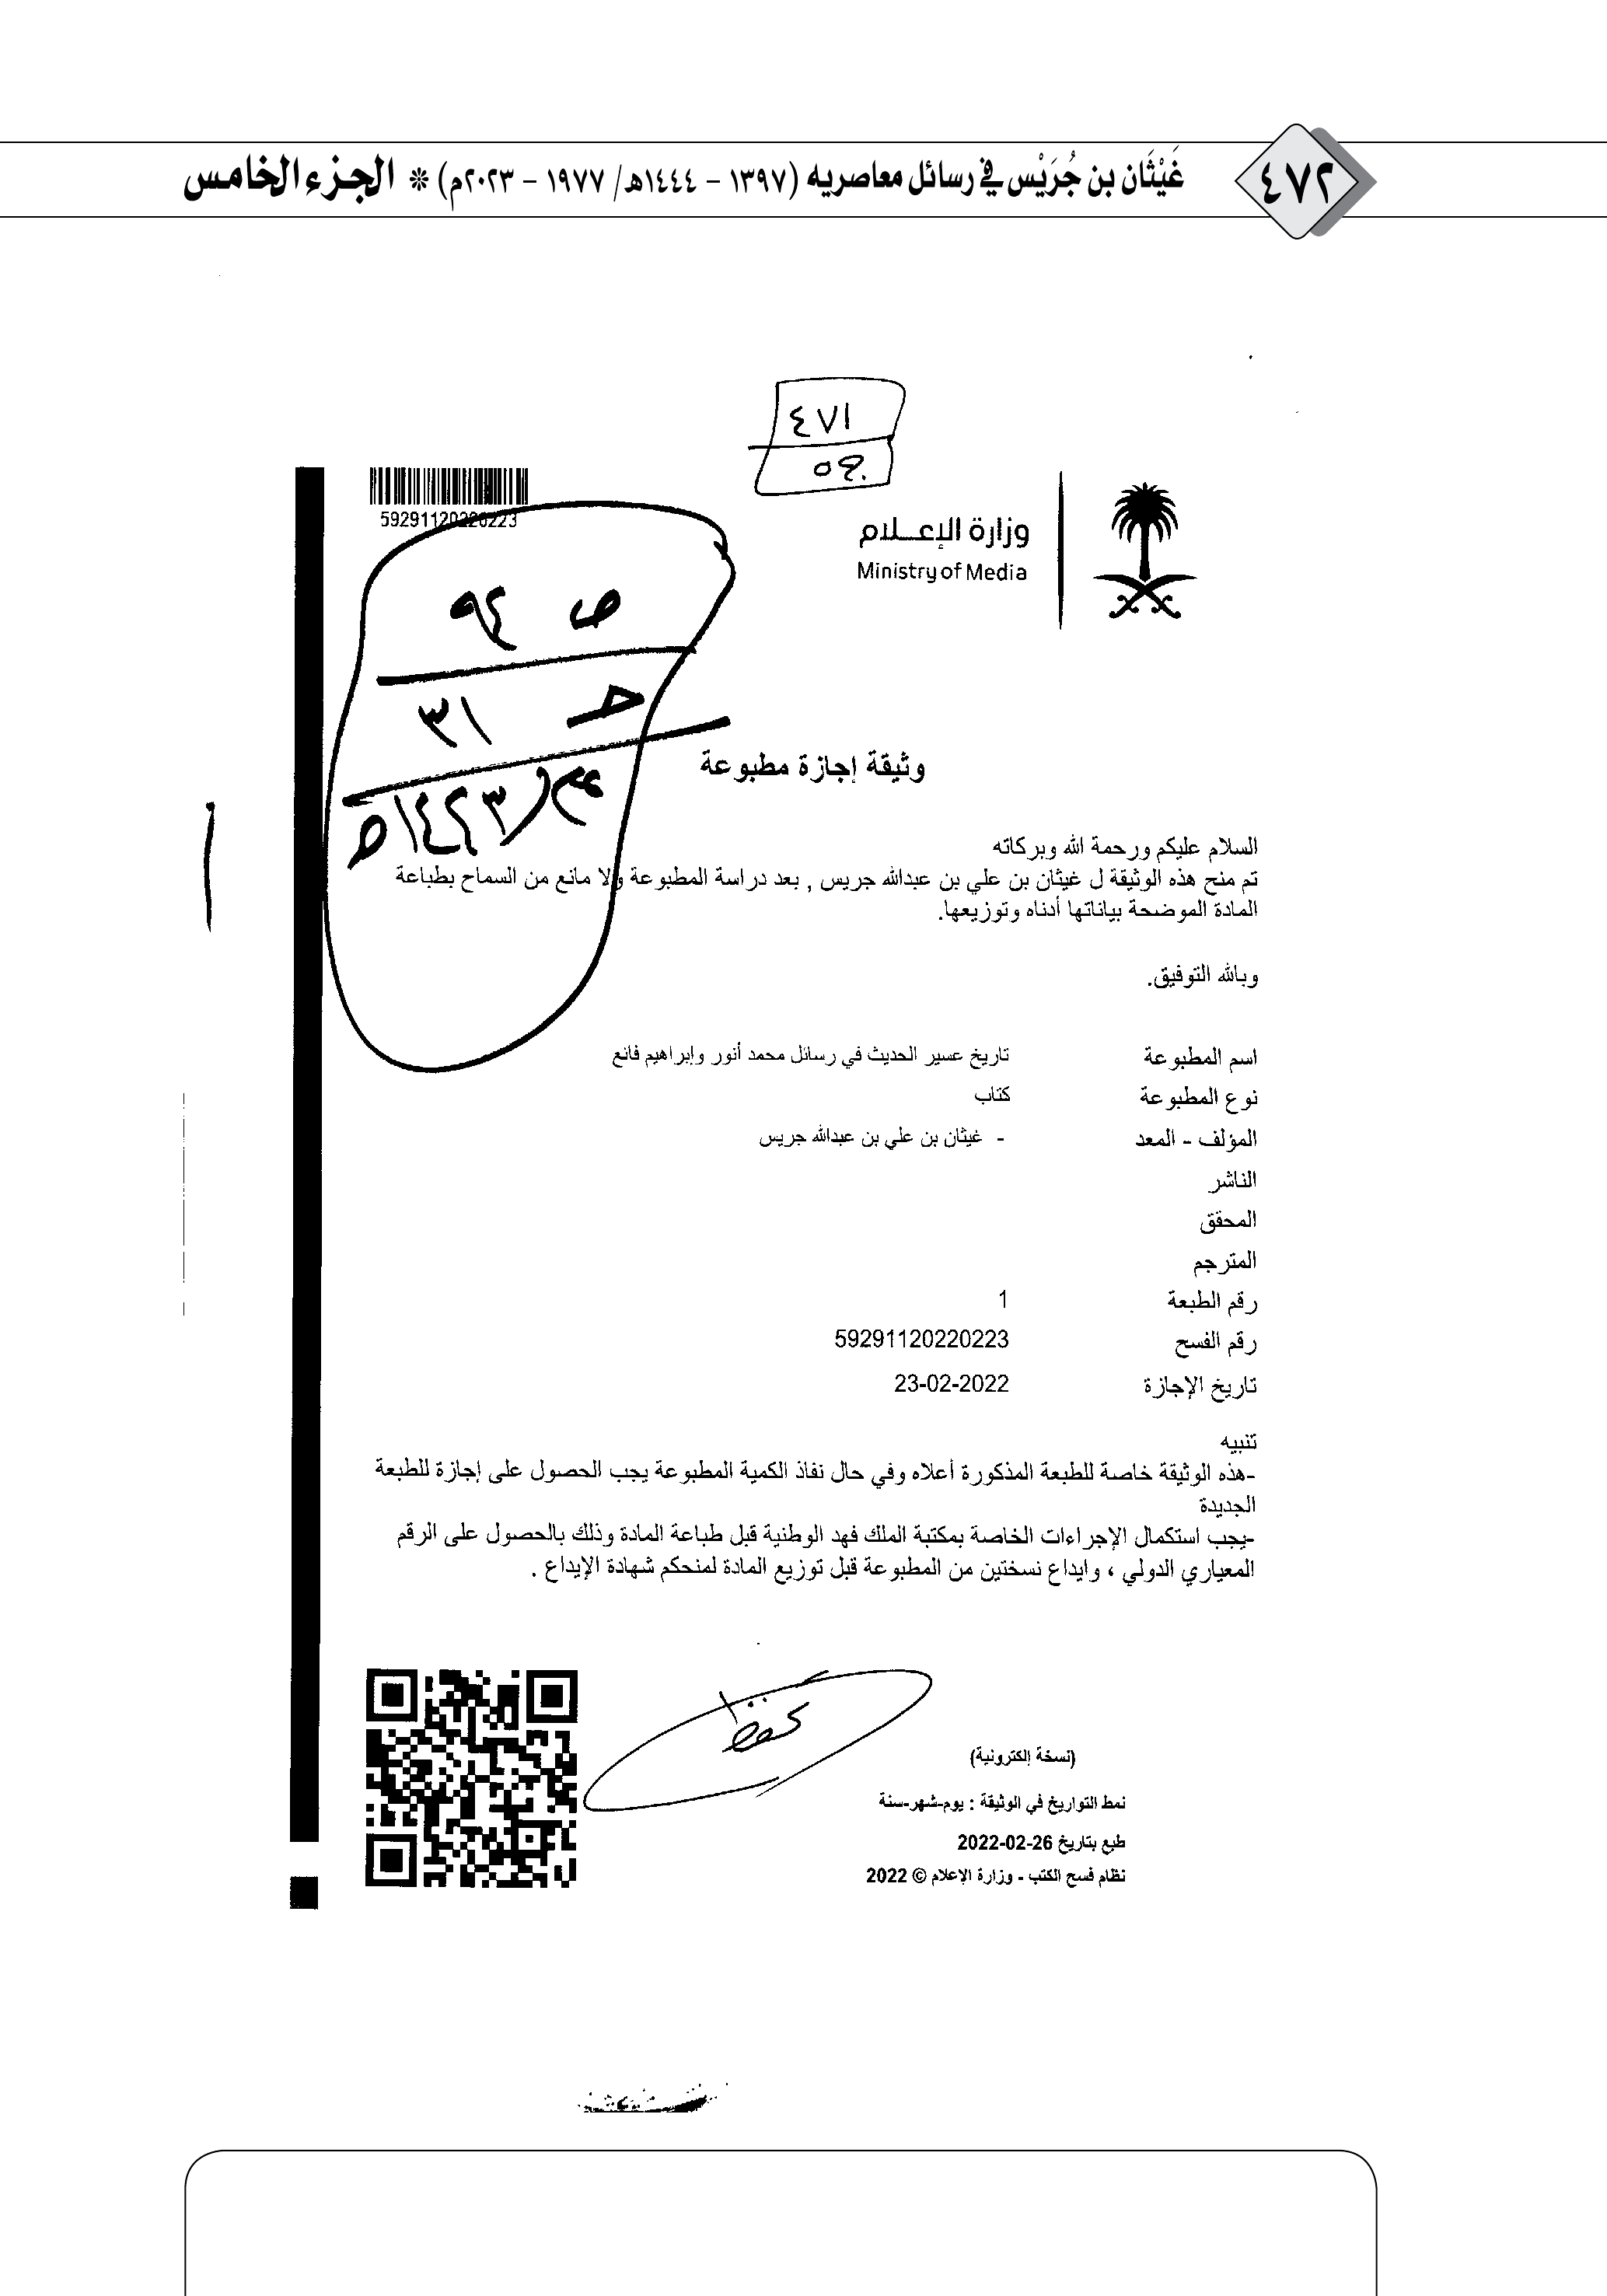 ٤٧٢
غَيْثَان بن جُرَيْس في رسائل معاصريه (١٣٩٧ – ١٤٤٤هـ/ ١٩٧٧ – ٢٠٢٣م) * الجزء الخامس
٤٧١
59291120220223
وزارة الإعلام
Ministry of Media
ص ٩٤
ح ٣١
وثيقة إجازة مطبوعة
السلام عليكم ورحمة الله وبركاته
تم منح هذه الوثيقة ل غيثان بن علي بن عبدالله جريس , بعد دراسة المطبوعة ولا مانع من السماح بطباعة
المادة الموضحة بياناتها أدناه وتوزيعها.
وبالله التوفيق.
اسم المطبوعة تاريخ عسير الحديث في رسائل محمد أنور وإبراهيم فائع
نوع المطبوعة كتاب
المؤلف - المعد - غيثان بن علي بن عبدالله جريس
الناشر
المحقق
المترجم
رقم الطبعة 1
رقم الفسح 59291120220223
تاريخ الإجازة 23-02-2022
تنبيه
-هذه الوثيقة خاصة للطبعة المذكورة أعلاه وفي حال نفاذ الكمية المطبوعة يجب الحصول على إجازة للطبعة
الجديدة
-يجب استكمال الإجراءات الخاصة بمكتبة الملك فهد الوطنية قبل طباعة المادة وذلك بالحصول على الرقم
المعياري الدولي ، وايداع نسختين من المطبوعة قبل توزيع المادة لمنحكم شهادة الإيداع .
(نسخة إلكترونية)
نمط التواريخ في الوثيقة : يوم-شهر-سنة
طبع بتاريخ 26-02-2022
نظام فسح الكتب - وزارة الإعلام © 2022